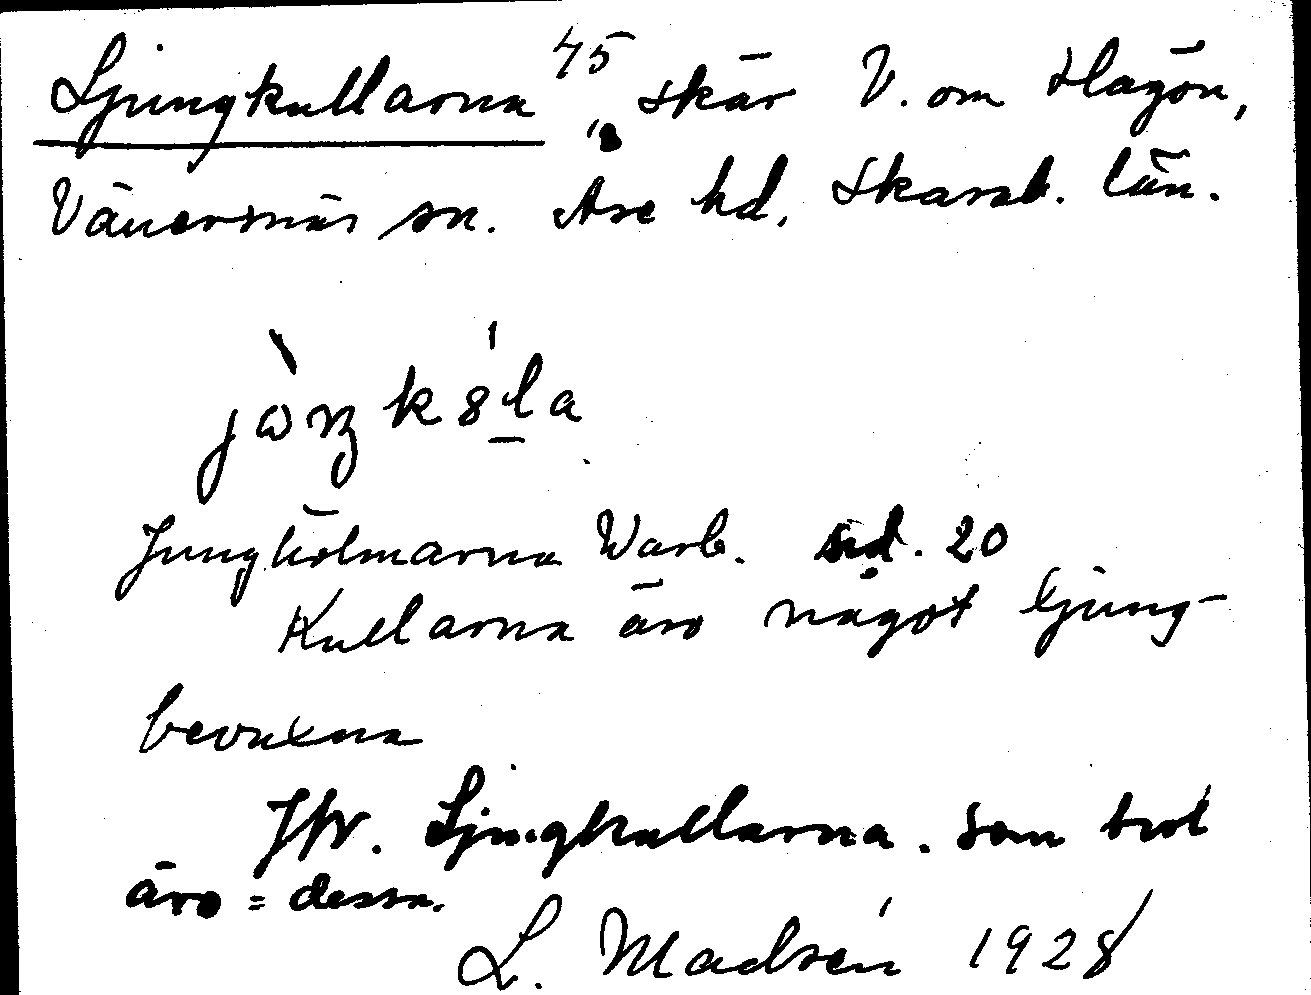 Ljungkullarna 45, skär V. om Hagön,
Vänersnäs sn. Åse hd, Skarab. län.
Jungholmarna Warb. sid. 20
Kullarna äro något ljung-
bevuxna
Jfr. Ljungkullarna. Som trol
äro = dessa.
L. Madsén 1928